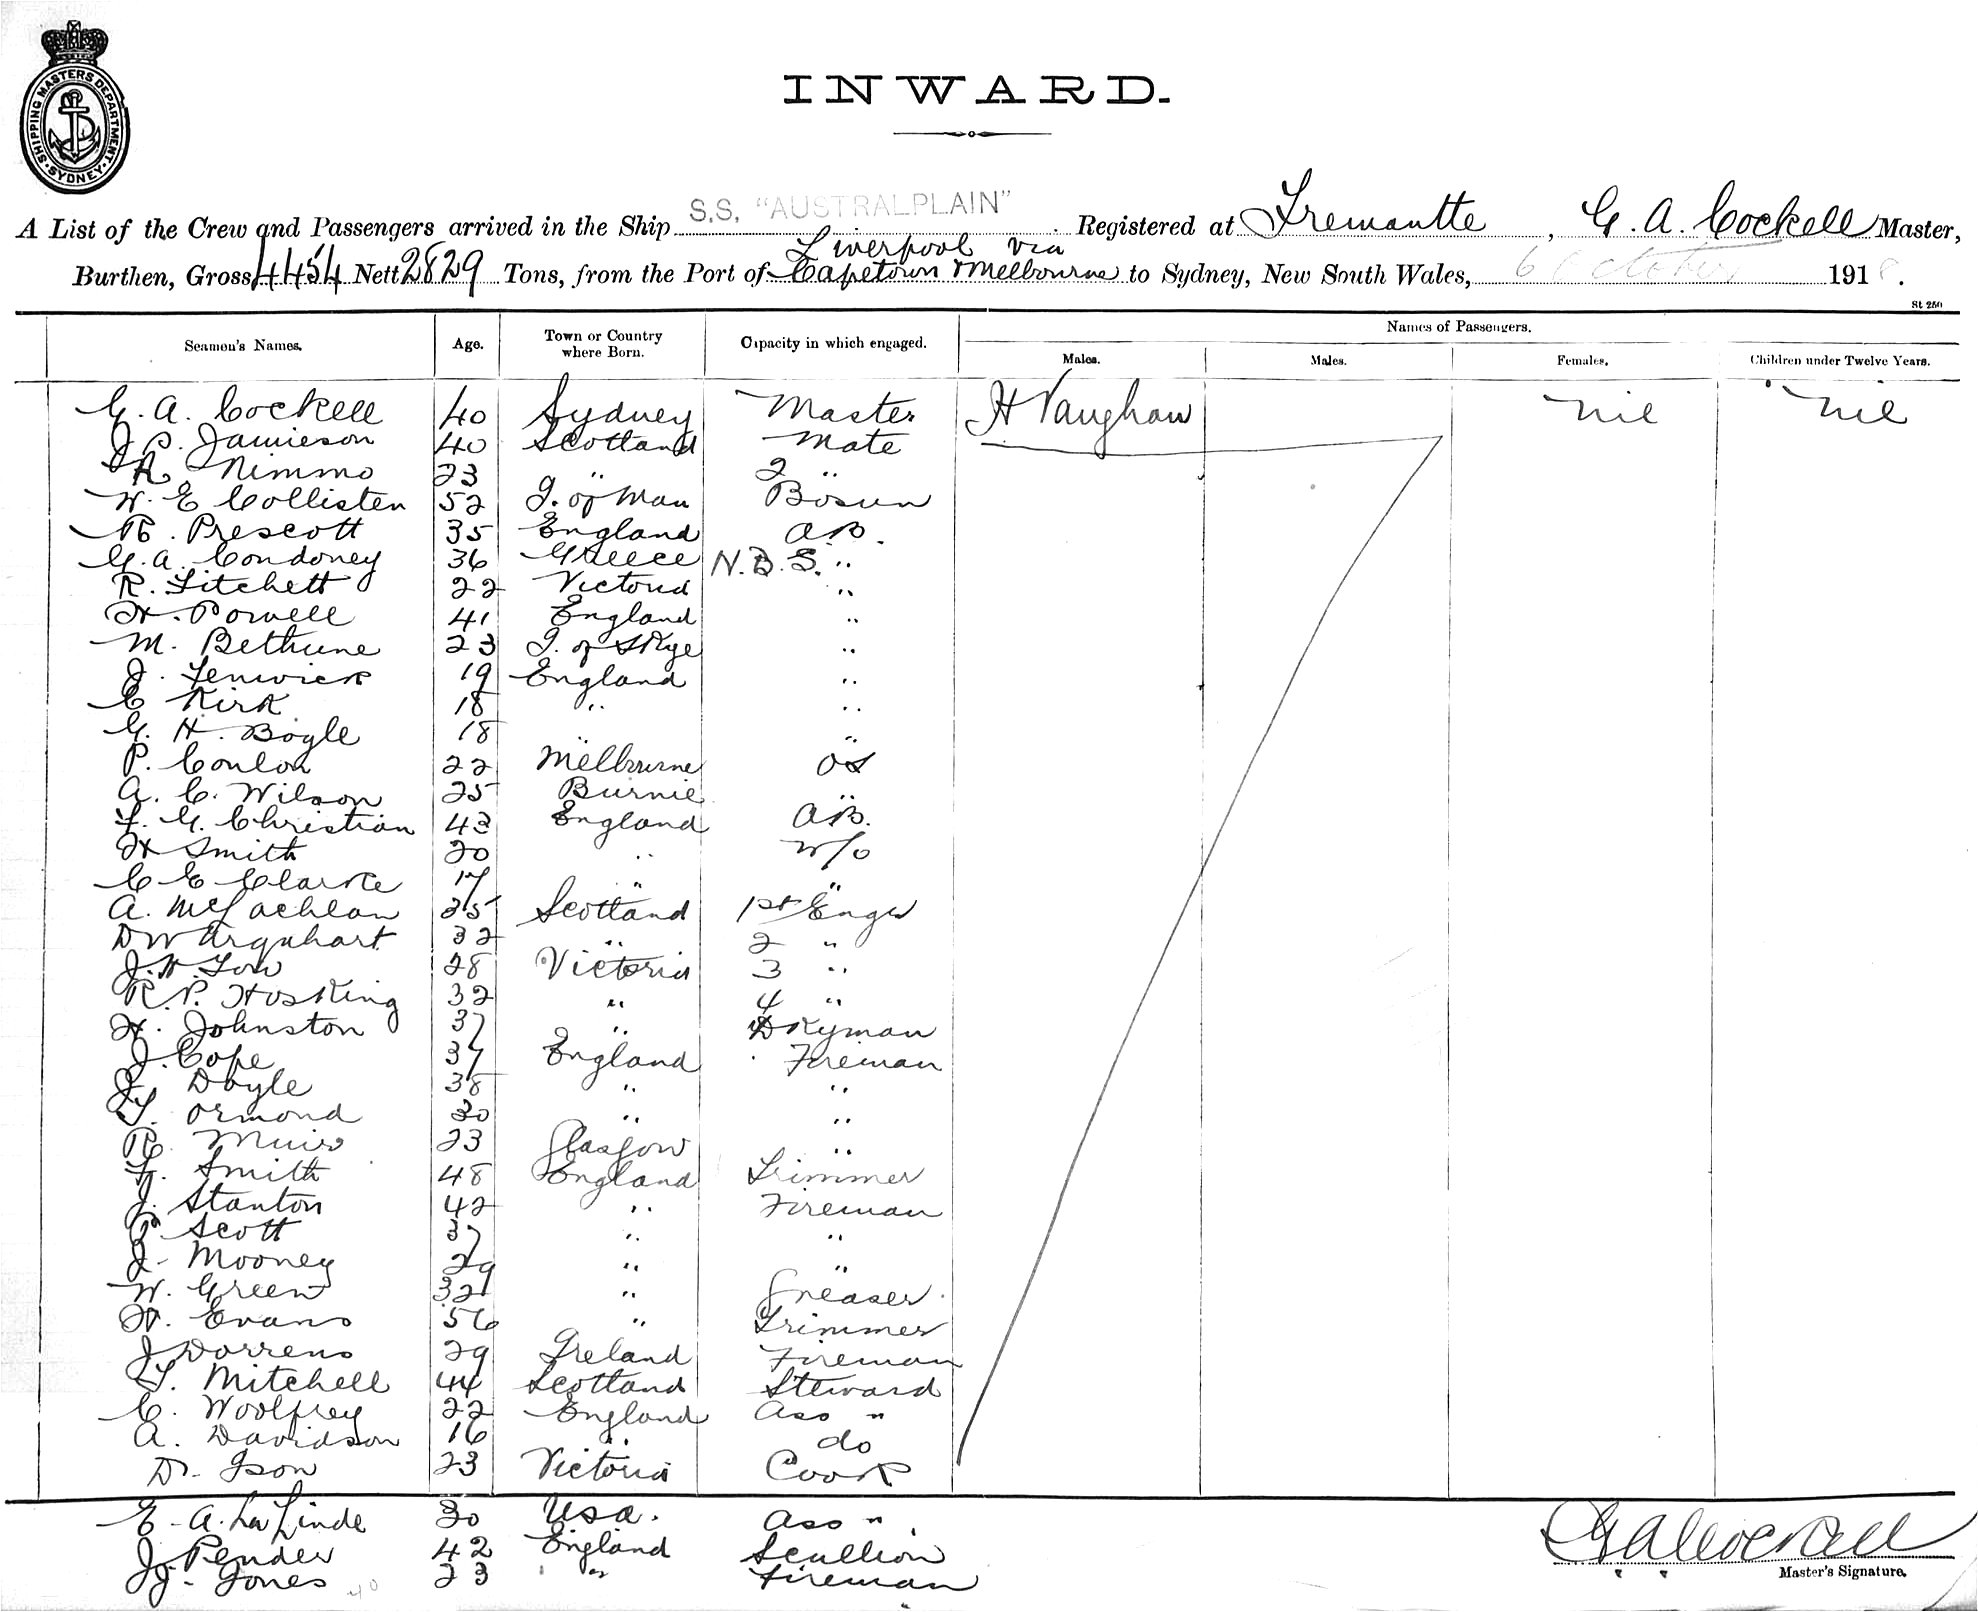 SHIPPING MASTERS DEPARTMENT. SYDNEY
INWARD.
A List of the Crew and Passengers arrived in the Ship S.S. "AUSTRALPLAIN" Registered at Fremantle, G. A. Cockell Master,
Liverpool via
Burthen, Gross 4454 Nett 2829 Tons, from the Port of Capetown & Melbourne to Sydney, New South Wales, 6 October 1918.
St 250
Seamen's Names. Age. Town or Country where Born. Capacity in which engaged. Names of Passengers.
Males. Males. Females. Children under Twelve Years.
G. A. Cockell 40 Sydney Master H Vaughan Nil Nil
J. P. Jamieson 40 Scotland Mate
R. Nimmo 23 " 2 "
W. E Collisten 52 I. of Man Bosun
R. Prescott 35 England A.B.
G. A. Condoney 36 Greece N.B.S. "
R. Fitchett 22 Victoria "
H. Powell 41 England "
M. Bethune 23 I. of Skye "
J. Fenwick 19 England "
C Kirk 18 " "
G. H. Boyle 18 " "
P. Conlon 22 Melbourne OS
A. C. Wilson 25 Burnie "
F. G. Christian 43 England A.B.
H Smith 20 " W/O
C E Clarke 17 " "
A. McLachlan 25 Scotland 1st Engr
D W Urquhart 32 " 2 "
J. H. Low 28 Victoria 3 "
R. P. Hosking 32 " 4 "
H. Johnston 37 " Dkyman
J. Cope 37 England Fireman
J. Doyle 38 " "
T. Ormond 30 " "
R. Muir 23 Glasgow "
F. Smith 48 England Trimmer
J. Stanton 42 " Fireman
P. Scott 37 " "
J. Mooney 29 " "
W. Green 32 " Greaser
H. Evans 56 " Trimmer
J Dorrens 29 Ireland Fireman
T. Mitchell 44 Scotland Steward
C. Woolfrey 22 England Ass "
A. Davidson 16 " do
D. Ison 23 Victoria Cook
E. A. La Linde 30 Usa. Ass "
J. Pender 42 England Scullion
J. Jones 23 " Fireman
G A Cockell
Master's Signature.